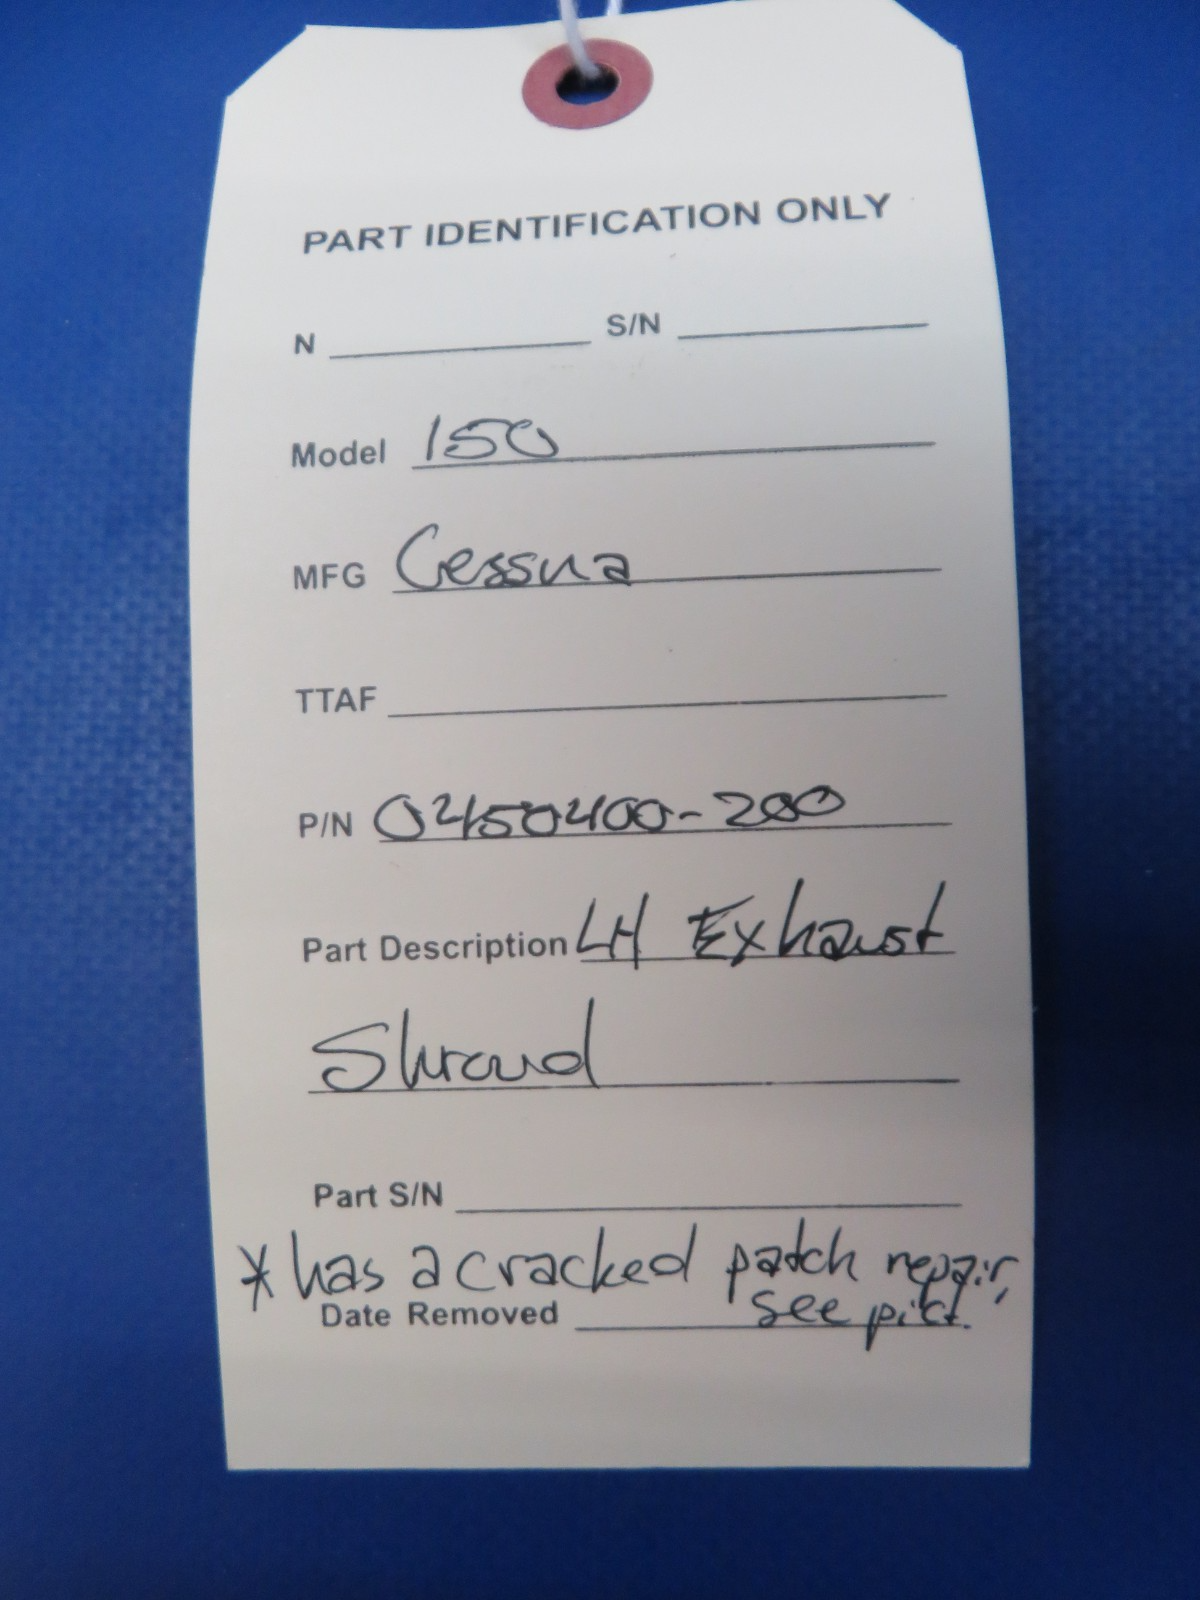 PART IDENTIFICATION ONLY
N S/N
Model 150
MFG Cessna
TTAF
P/N 0450400-200
Part Description LH Exhaust
Shroud
Part S/N
* has a cracked patch repair,
Date Removed see pict.